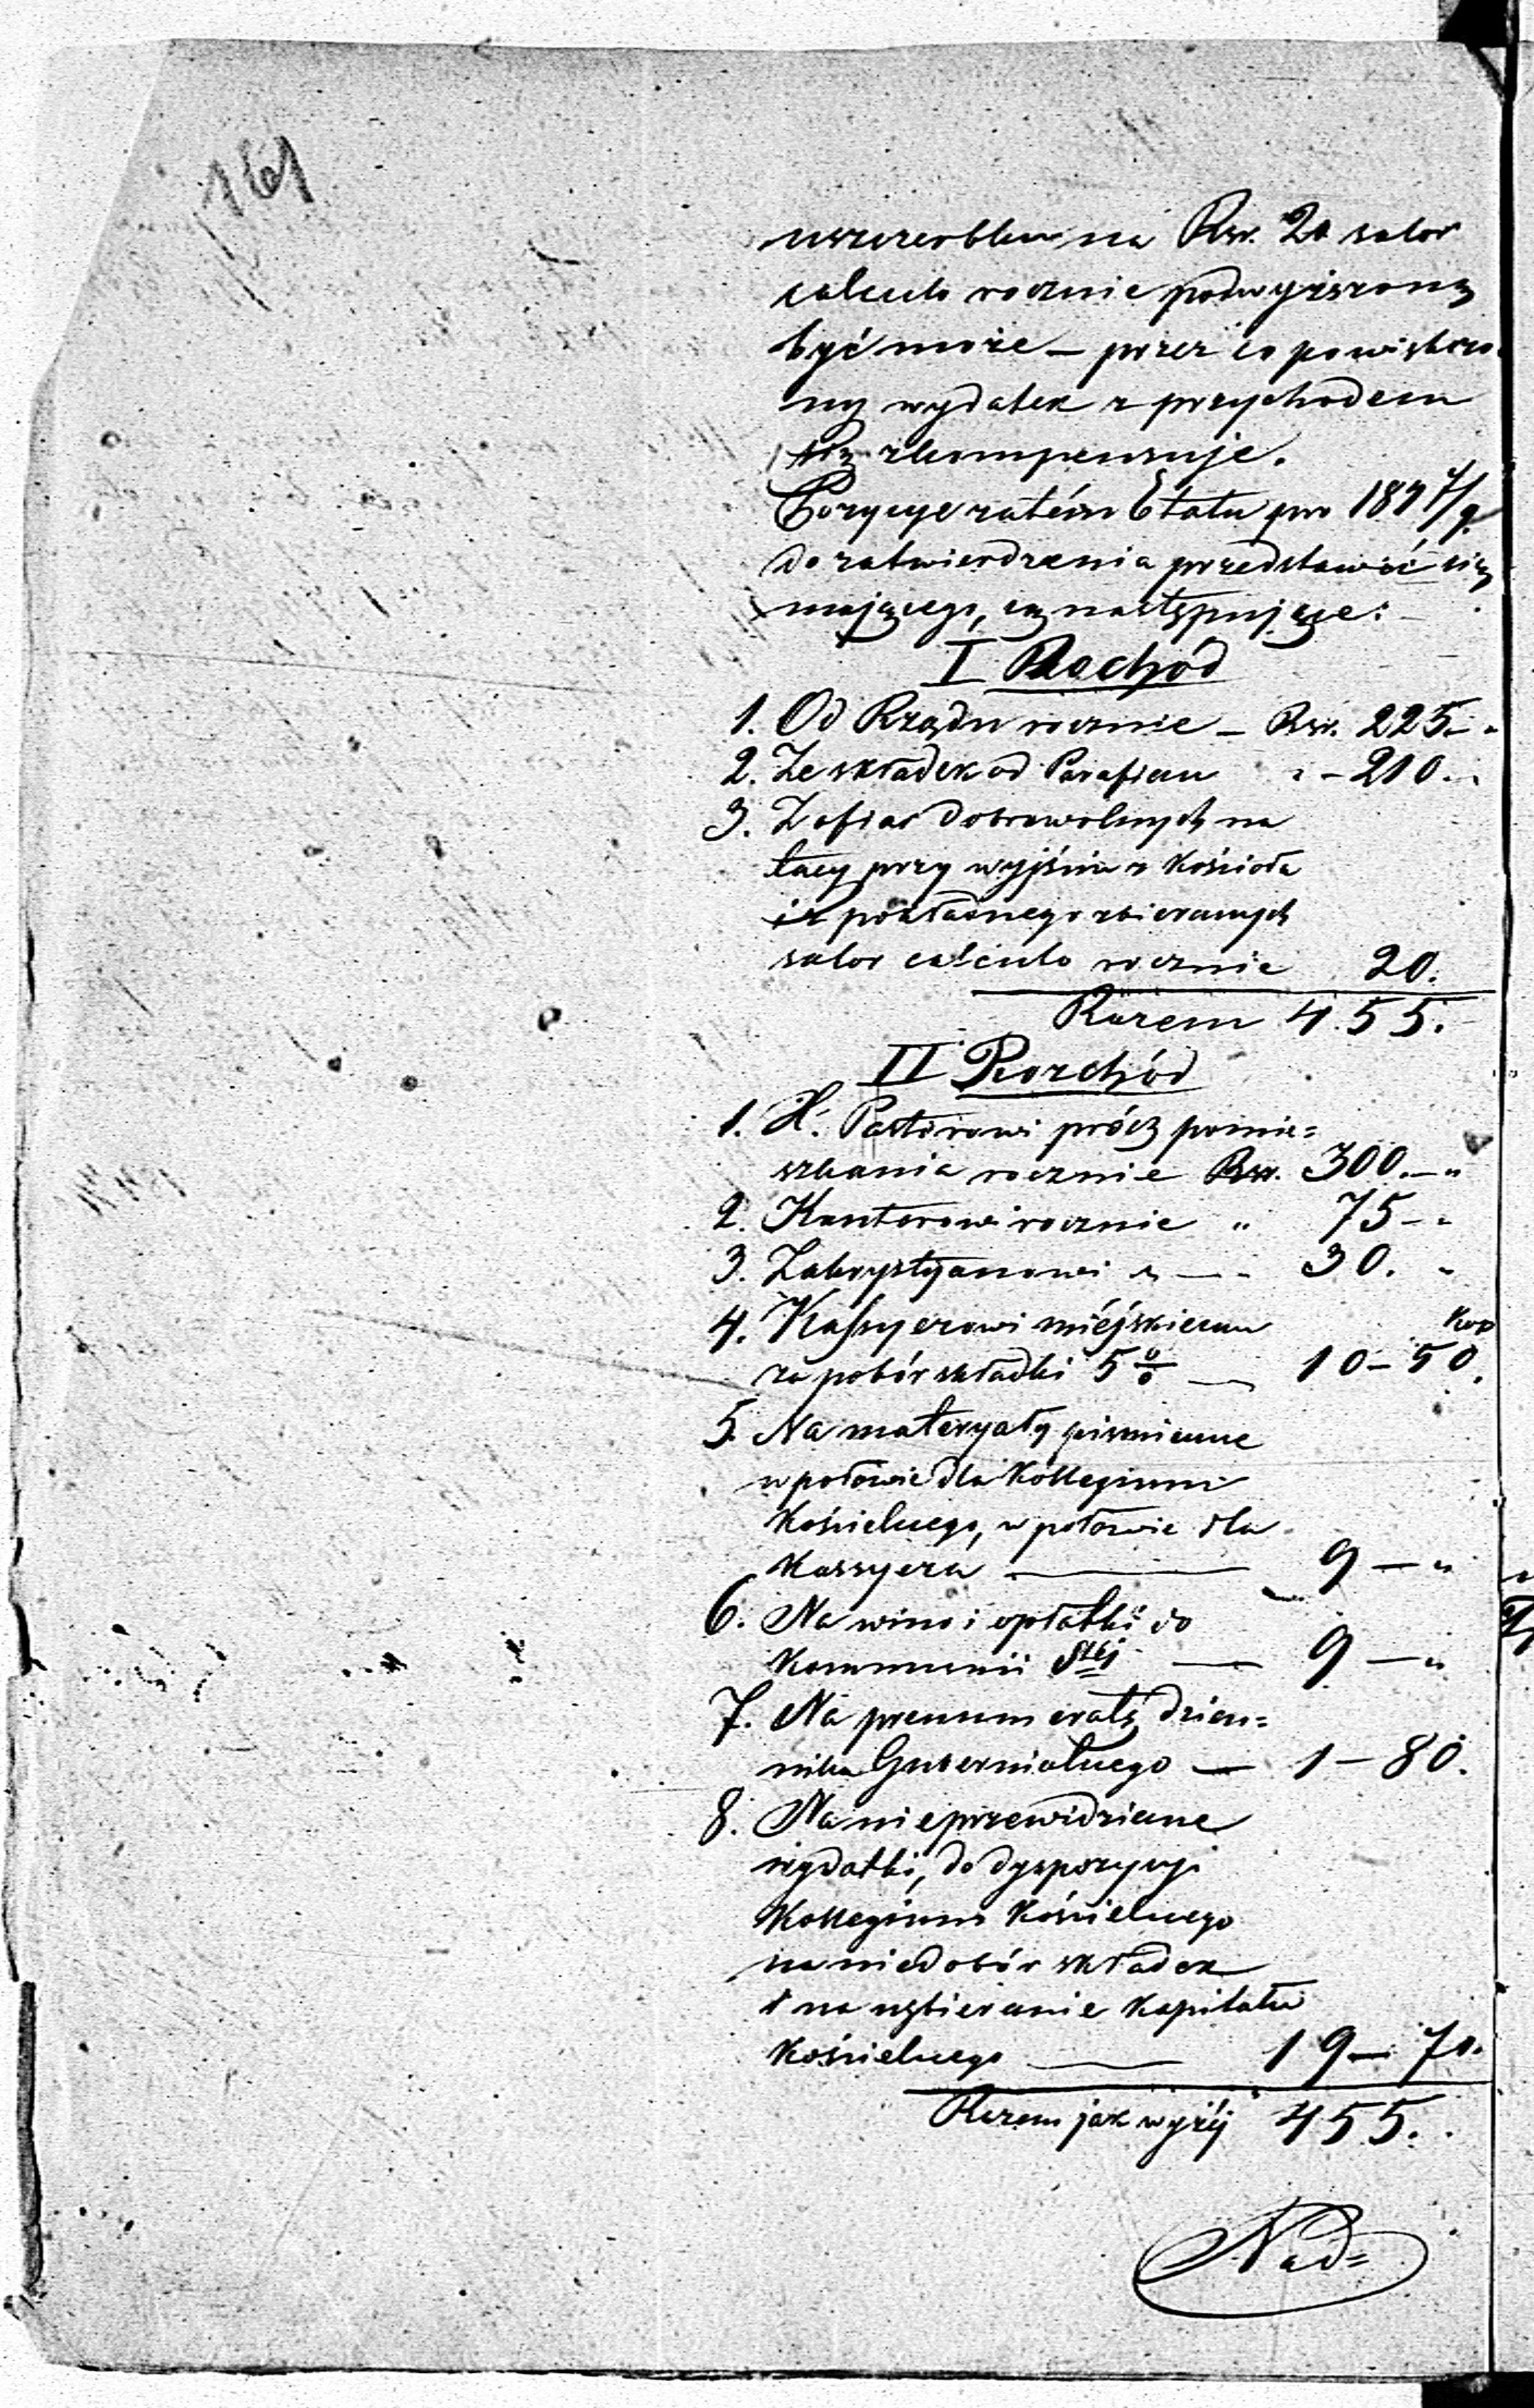 161
uszczerbku na Rsr. 20 salvo
calculo rocznie podwyższoną
być może – przez co powiększo-
ny wydatek z przychodem
się zkompensuje.
Pozycye zatém Etatu pro 187 7/9
do zatwierdzenia przedstawić się
mającego, są następujące:
I Dochód
1. Od Rządu rocznie – Rsr. 225. – "
2. Ze składek od Parafian " – 210. "
3. Z ofiar dobrowolnych na
tacy przy wyjściu z Kościoła
i z pokładnego zbieranych
salvo calculo rocznie 20.
Razem 455.
II Rozchód
1. X. Pastorowi prócz pomie=
szkania rocznie Rsr. 300. – "
2. Kantorowi rocznie " 75 – "
3. Zakrystyanowi " – " 30. "
4. Kassyerowi miéjskiemu Kop
za pobór składki 5 % — 10 – 50.
5. Na materyały piśmienne
w połowie dla Kollegium
Kościelnego, w połowie dla
Kassyera — 9 — "
6. Na wino i opłatki do
Kommunii Stéj — 9 — "
7. Na prenumeratę Dzien=
nika Gubernialnego — 1 – 80.
8. Na nieprzewidziane
wydatki, do dyspozycyi
Kollegium Kościelnego
na niedobór składek
i na uzbieranie Kapitału
Kościelnego — 19 – 70.
Razem jak wyżéj 455.
Nad=